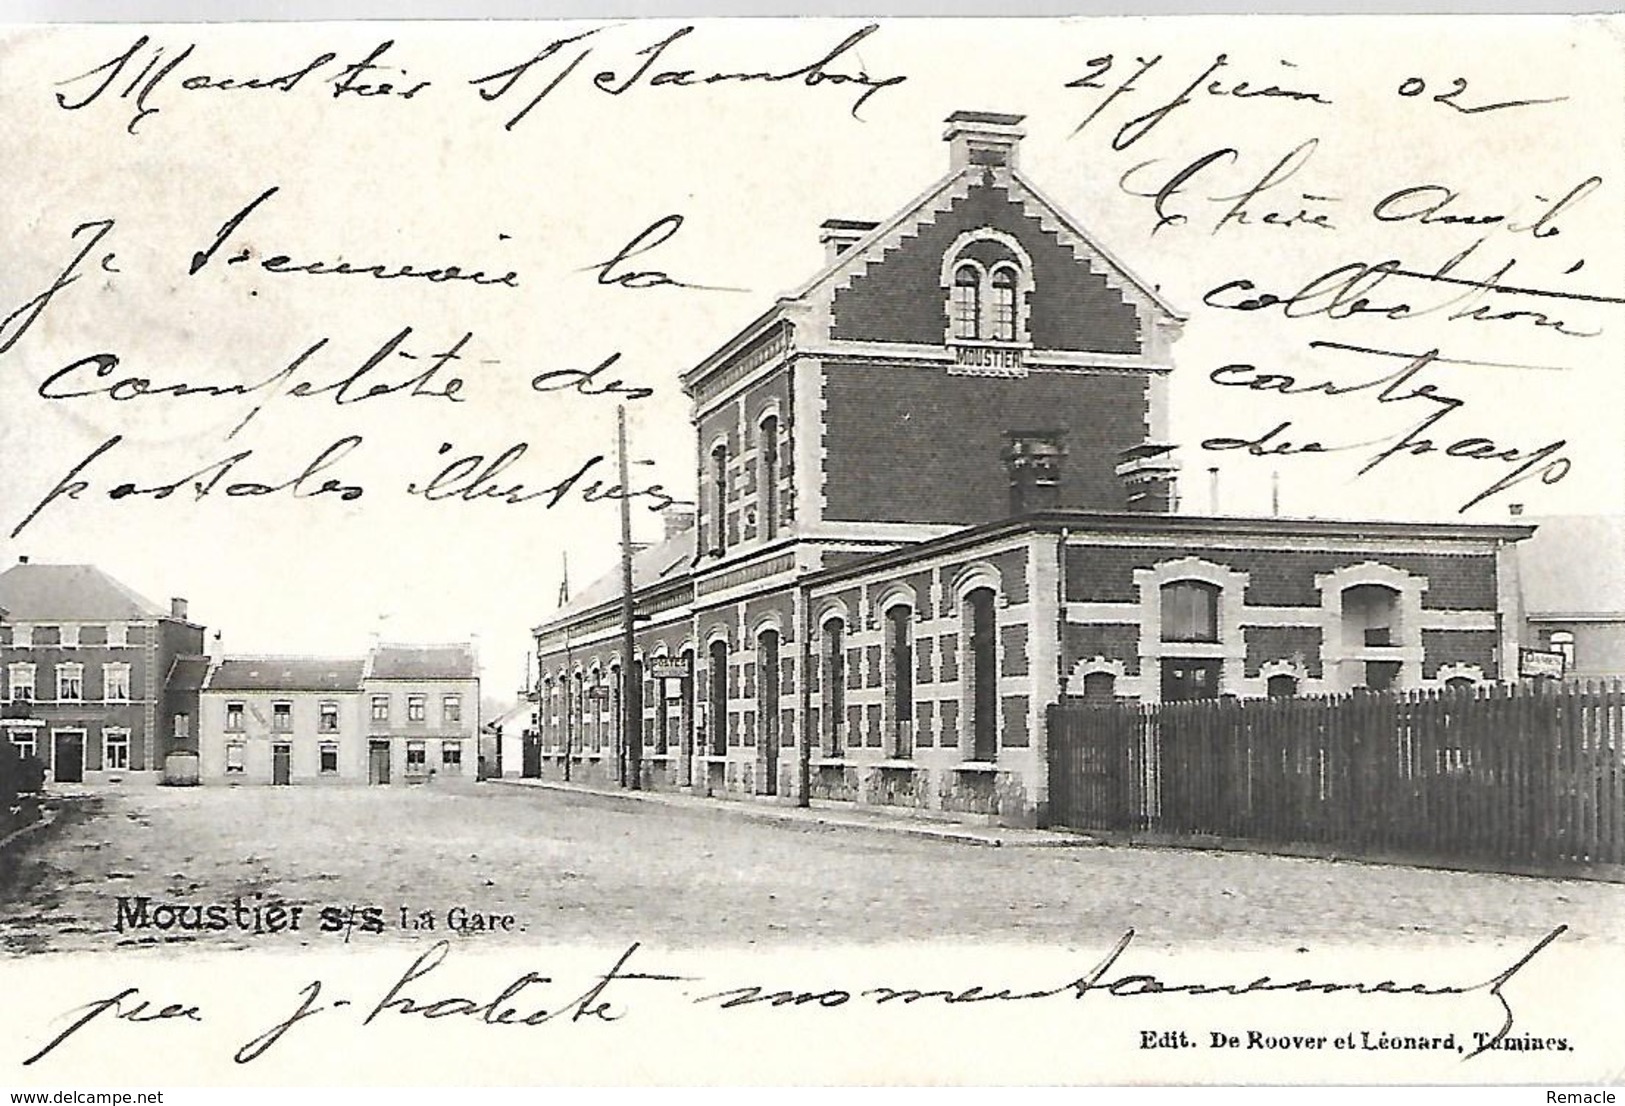 Moustier S/ Sambre 27 juin 02
Chère Angèle
Je t'envoie la collection
complète des cartes
postales illustrées du pays
que j'habite momentanement
MOUSTIER
POSTES
DAMES
Moustier s/s La Gare.
Edit. De Roover et Léonard, Tamines.
www.delcampe.net
Remacle